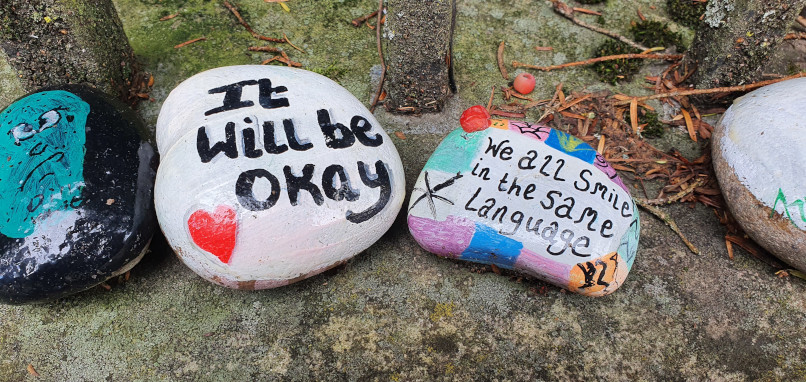 It
Will be
Okay
We all Smile
in the same
Language